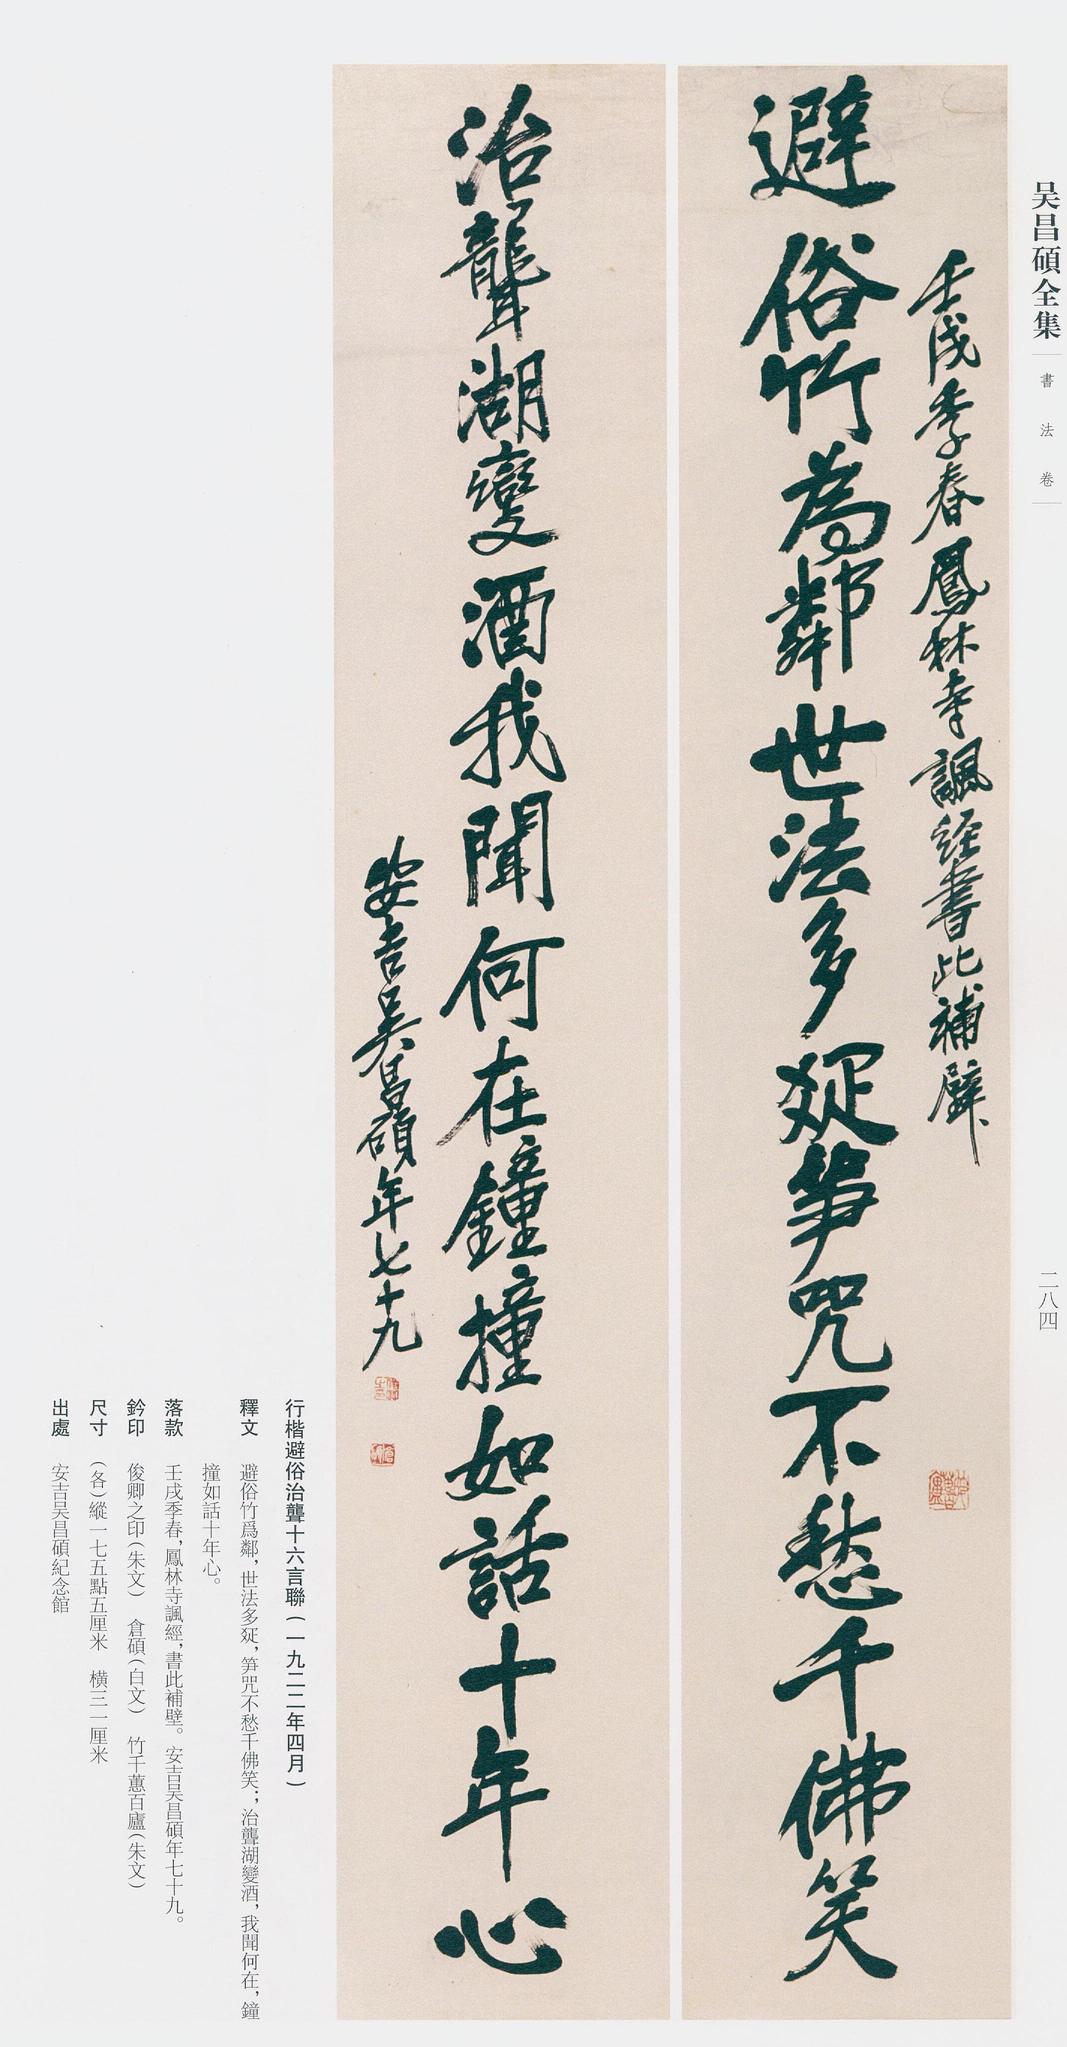 吴昌碩全集
書法卷
二八四
壬戌季春鳳林寺諷經書此補壁
避俗竹為鄰世法多娫笋咒不愁千佛笑
治聾湖變酒我聞何在鐘撞如話十年心
安吉吴昌碩年七十九
行楷避俗治聾十六言聯(一九二二年四月)
釋文 避俗竹爲鄰,世法多㸚,笋咒不愁千佛笑;治聾湖變酒,我聞何在,鐘
撞如話十年心。
落款 壬戌季春,鳳林寺諷經,書此補壁。安吉吴昌碩年七十九。
鈐印 俊卿之印(朱文) 倉碩(白文) 竹千蕙百廬(朱文)
尺寸 (各)縱一七五點五厘米 横三一厘米
出處 安吉吴昌碩紀念館